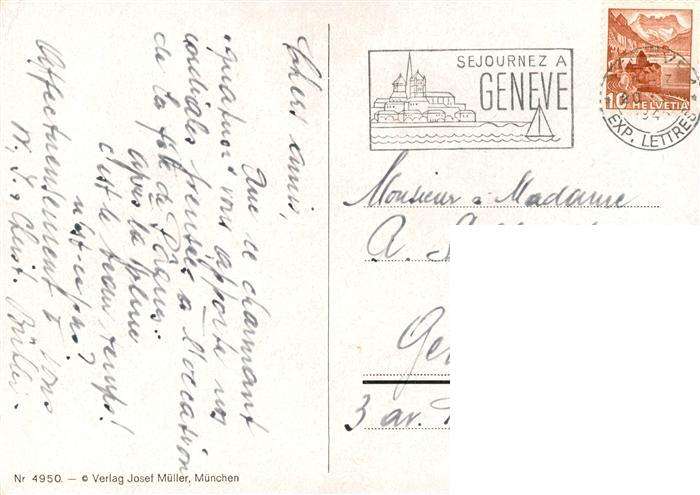 Chers amis,
Que ce charmant
vous apporte nos
cordiales pensées à l'occasion
de la fête de Pâques.
après la pluie
c'est le beau temps!
n'est-ce pas?
Affectueusement à vous
SEJOURNEZ A
GENEVE
10 HELVETIA
EXP. LETTRES
Monsieur & Madame
A.
Ge
3 av.
Nr 4950. — © Verlag Josef Müller, München